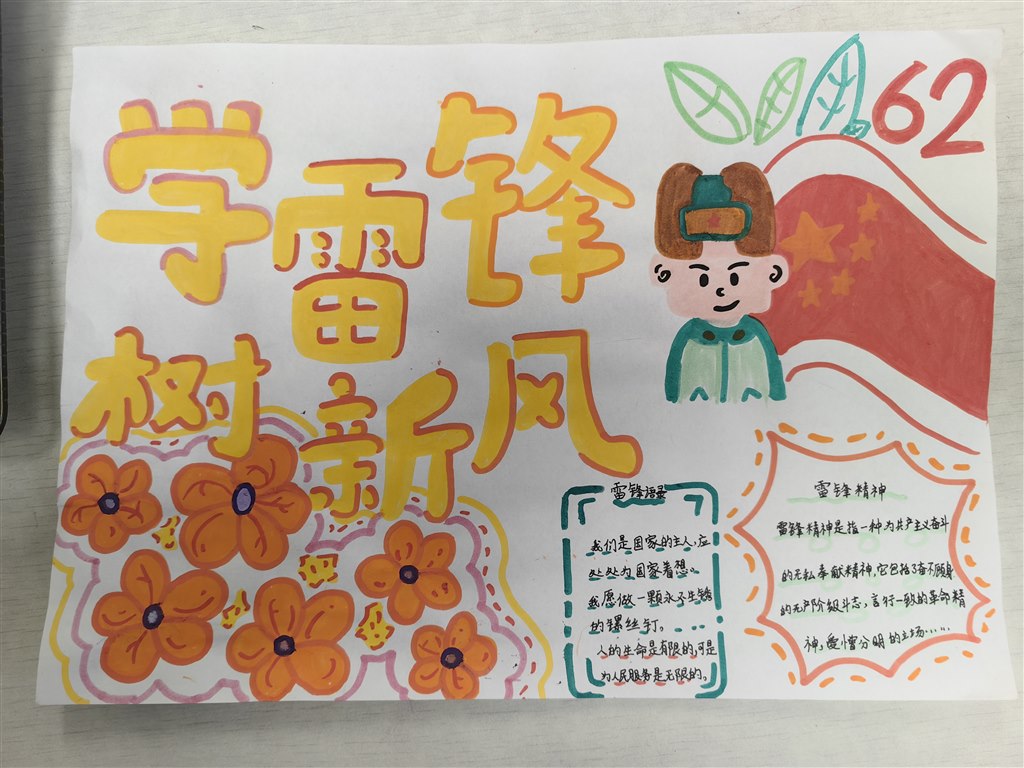 学雷锋
树新风
62
雷锋语录
我们是国家的主人,应
处处为国家着想。
我愿做一颗永不生锈
的螺丝钉。
人的生命是有限的,可是
为人民服务是无限的。
雷锋精神
雷锋精神是指一种为共产主义奋斗
的无私奉献精神,它包括了奋不顾身
的无产阶级斗志,言行一致的革命精
神,爱憎分明的立场……